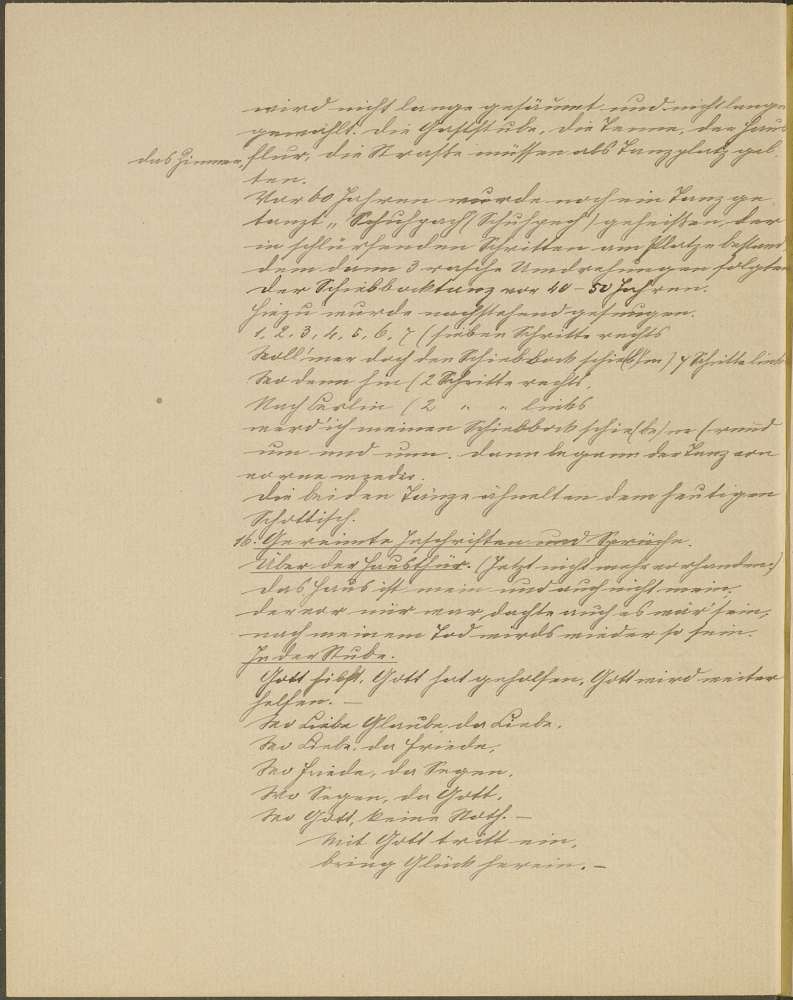 wird nicht lange gesäumt und nicht lange
gewählt. Die Gaststube, die Tenne, der Haus
das Zimmer, flur, die Straße müssen als Tanzplatz gel-
ten.
Vor 60 Jahren wurde noch ein Tanz ge
tanzt „ Schuhpach (Schuhpech) geheißen, der
in schlürfenden Schritten am Platze bestand
dem dann 3 rasche Umdrehungen folgten
Der Schiebbocktanz vor 40 - 50 Jahren.
Hiezu wurde nachstehend gesungen.
1, 2, 3, 4, 5, 6, 7 (sieben Schritte rechts
Woll'mer doch den Schiebbock schie(b)'m) 7 Schritte links
Wo denn hin (2 Schritte rechts,
Nach Berlin (2 " " links
werd' ich meinen Schiebbock schie(be)ne (rund
um und um. Dann begann der Tanz von
vorne wieder.
Die beiden Tänze ähnelten dem heutigen
Schottisch.
16. Gereimte Inschriften und Sprüche.
Über der Hausthür. (Jetzt nicht mehr vorhanden)
Das Haus ist mein und auch nicht mein,
der vor mir war, dachte auch es wär' sein,
nach meinem Tod wirds wieder so sein.
In der Stube.
Gott hilft, Gott hat geholfen, Gott wird weiter
helfen. —
Wo Glaube, da Liebe,
Wo Liebe, da Friede,
Wo Friede, da Segen,
Wo Segen, da Gott,
Wo Gott, keine Noth. —
Mit Gott tritt ein,
bring Glück herein. —